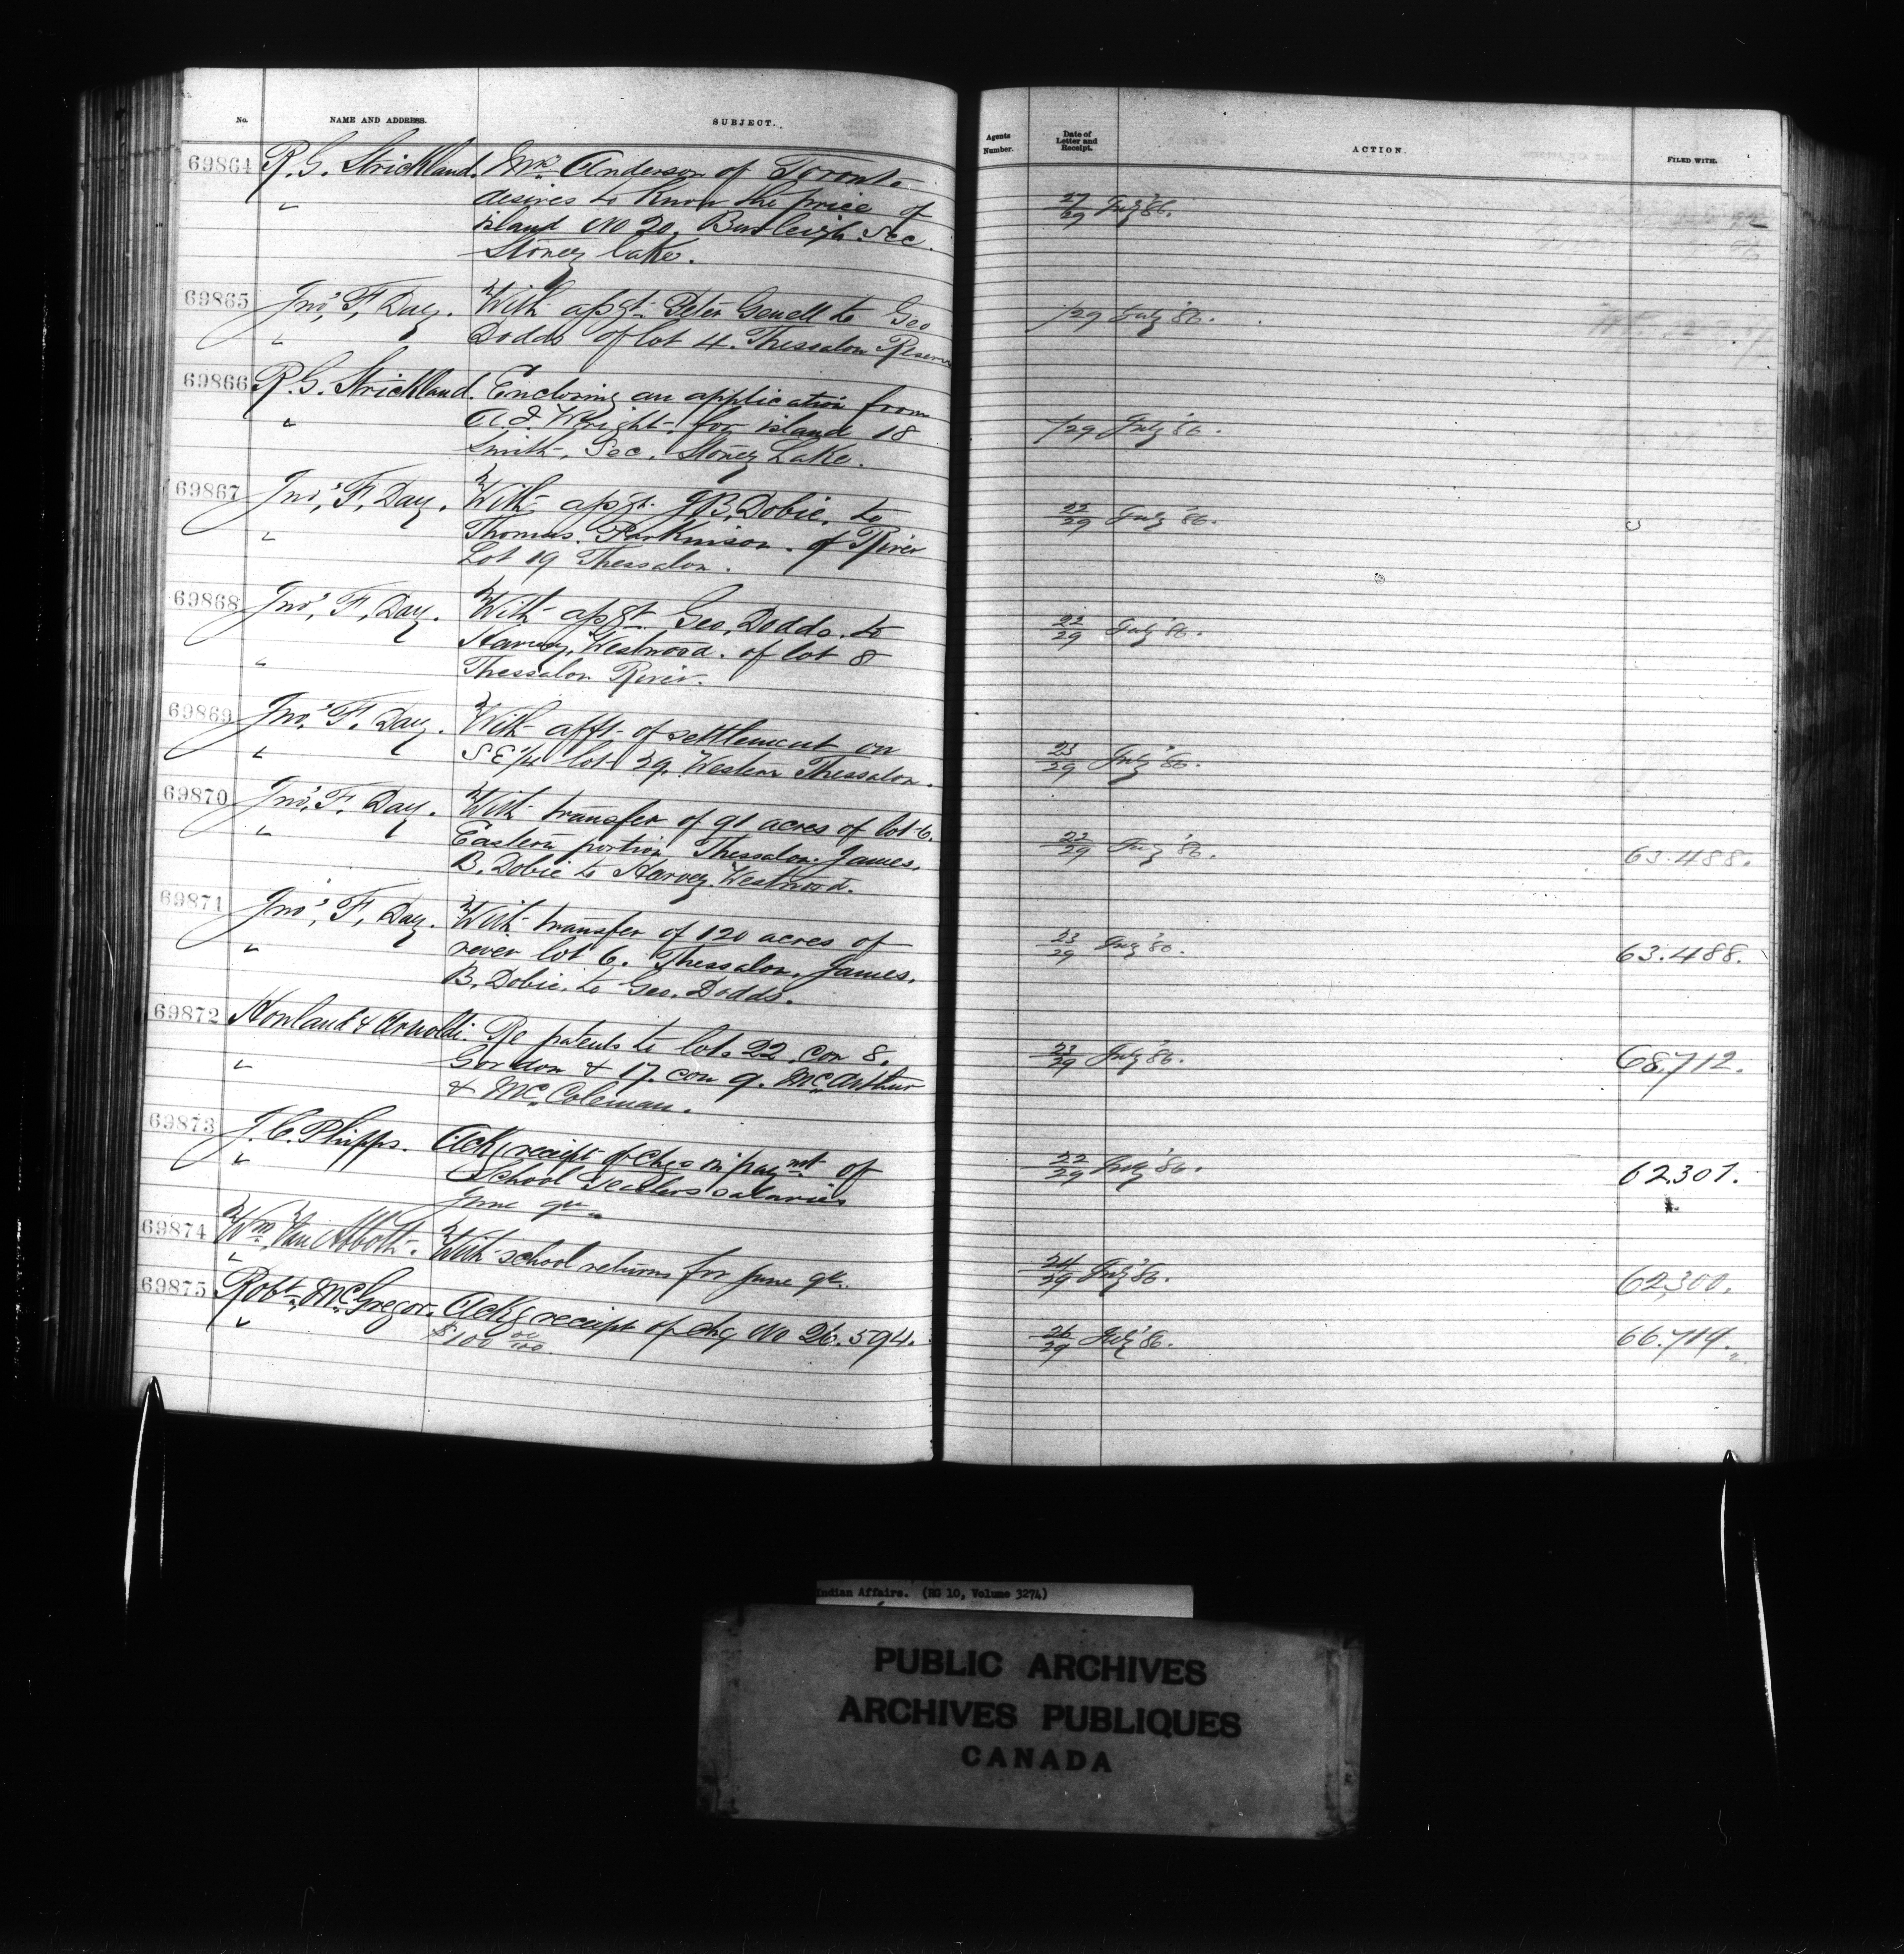 No. NAME AND ADDRESS. SUBJECT. Agents Number. Date of Letter and Receipt. ACTION. FILED WITH.
69864 R. G. Strickland. Mr. Anderson of Toronto
desires to know the price of 27/29 July '86.
island No 20, Burleigh Sec.
Stoney lake.
69865 Jno. F. Day. With apsgt. Peter Gowell to Geo /29 July '86.
Dodds of lot 4. Thessalon Reserve
69866 R. G. Strickland. Enclosing an application from
Wright for island 18 /29 July '86.
Smith, Sec. Stoney Lake.
69867 Jno. F. Day. With apsgt. J B. Dobie, to 22/29 July '86.
Thomas Parkinson of River
Lot 19 Thessalon.
69868 Jno. F. Day. With apsgt Geo. Dodds. to 22/29 July '86.
Harvey, Westwood. of lot 8
Thessalon River.
69869 Jno. F. Day. With afft. of settlement on
S E 1/4 lot 29. Western Thessalon. 23/29 July '86.
69870 Jno. F. Day. With transfer of 91 acres of lot 6.
Eastern portion Thessalon. James. 22/29 July '86. 63.488.
B. Dobie to Harvey Westwood.
69871 Jno. F. Day. With transfer of 120 acres of 23/29 July '86. 63.488.
river lot 6. Thessalon. James.
B. Dobie. to Geo. Dodds.
69872 Howland & Arnoldi. Re patents to lots 22 con 8. 23/29 July '86. 68.712.
Gordon & 17. con 9. McArthur
& Mc. Coleman.
69873 J. C. Phipps. Ackg receipt of chqs in paymt of 22/29 July '86. 62.301.
School Teachers salaries
June qr.
69874 Wm. Van Abbott. With school returns for June qr. 24/29 July '86. 62,300.
69875 Robt. McGregor. Ackg receipt of chq No 26.594. 26/29 July '86. 66.719.
$100 00/100.
Indian Affairs. (RG 10, Volume 3274)
PUBLIC ARCHIVES
ARCHIVES PUBLIQUES
CANADA